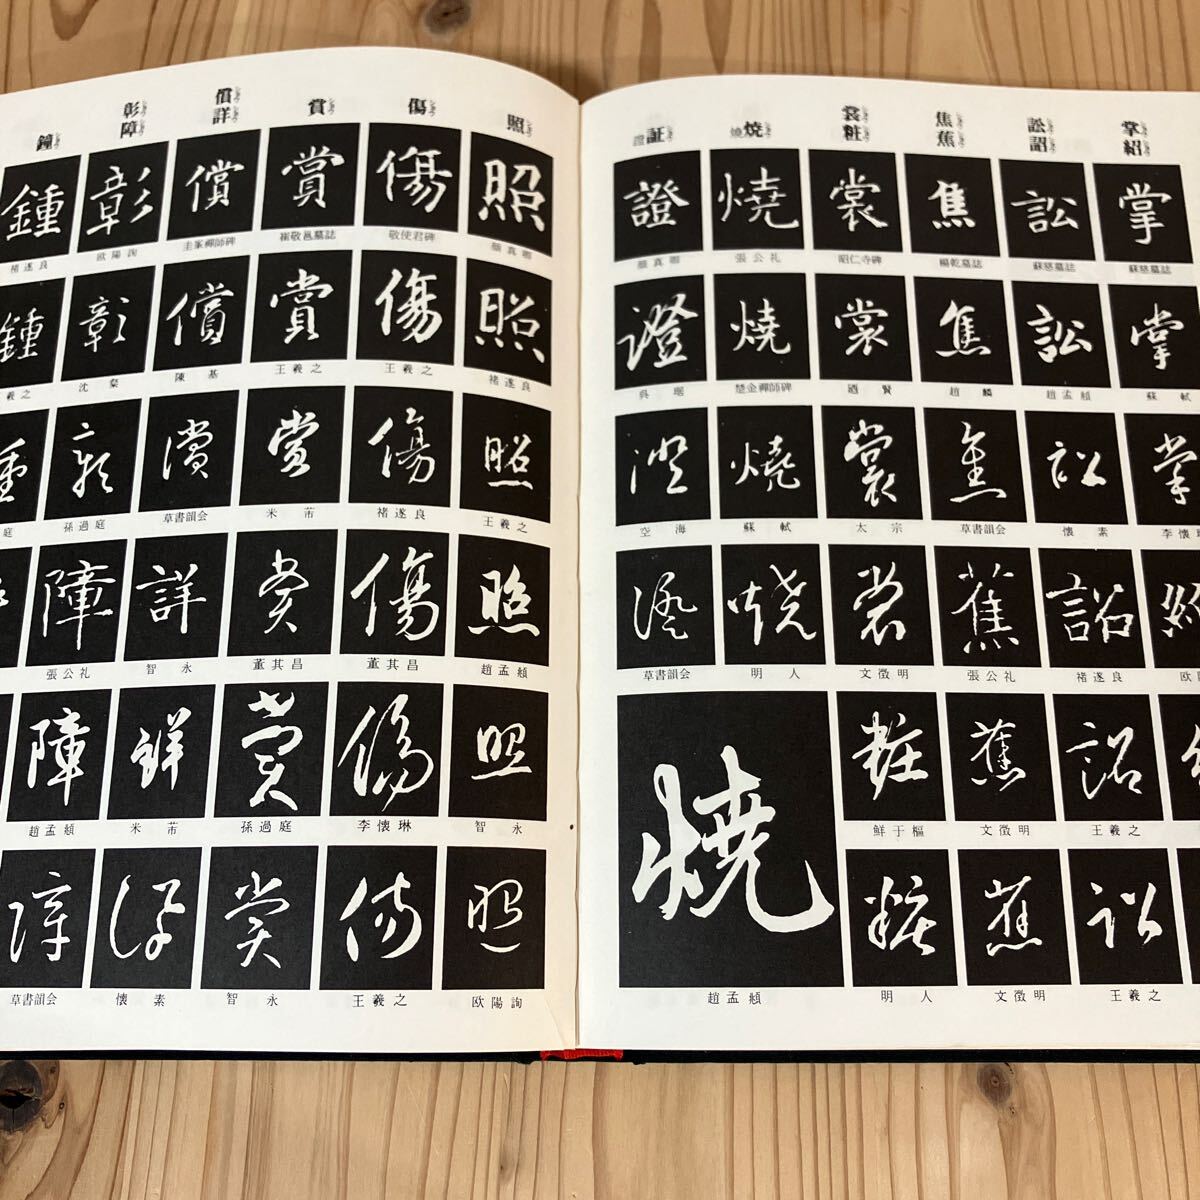 掌紹
訟詔
焦蕉
裳粧
焼燒
証證
照
傷
賞
償詳
彰障
鐘
掌 訟 焦 裳 燒 證
蘇慈墓誌 蘇慈墓誌 楊乾墓誌 昭仁寺碑 張公礼 顔真卿
掌 訟 焦 裳 燒 證
蘇軾 趙孟頫 趙麟 迺賢 楚金禅師碑 呉琚
掌 訟 焦 裳 燒 證
李懐琳 懐素 草書韻会 太宗 蘇軾 空海
詔 蕉 裳 燒 證
褚遂良 張公礼 文徴明 明人 草書韻会
詔 蕉 粧 燒
王羲之 文徴明 鮮于枢 趙孟頫
詔 蕉 粧
王羲之 文徴明 明人
照 傷 賞 償 彰 鍾
顔真卿 敬使君碑 崔敬邕墓誌 圭峯禅師碑 欧陽詢 褚遂良
照 傷 賞 償 彰 鍾
褚遂良 王羲之 王羲之 陳基 沈粲 羲之
照 傷 賞 償 彰
王羲之 褚遂良 米芾 草書韻会 孫過庭 庭
照 傷 賞 詳 障
趙孟頫 董其昌 董其昌 智永 張公礼
照 傷 賞 詳 障
智永 李懐琳 孫過庭 米芾 趙孟頫
照 傷 賞 詳 障
欧陽詢 王羲之 智永 懐素 草書韻会